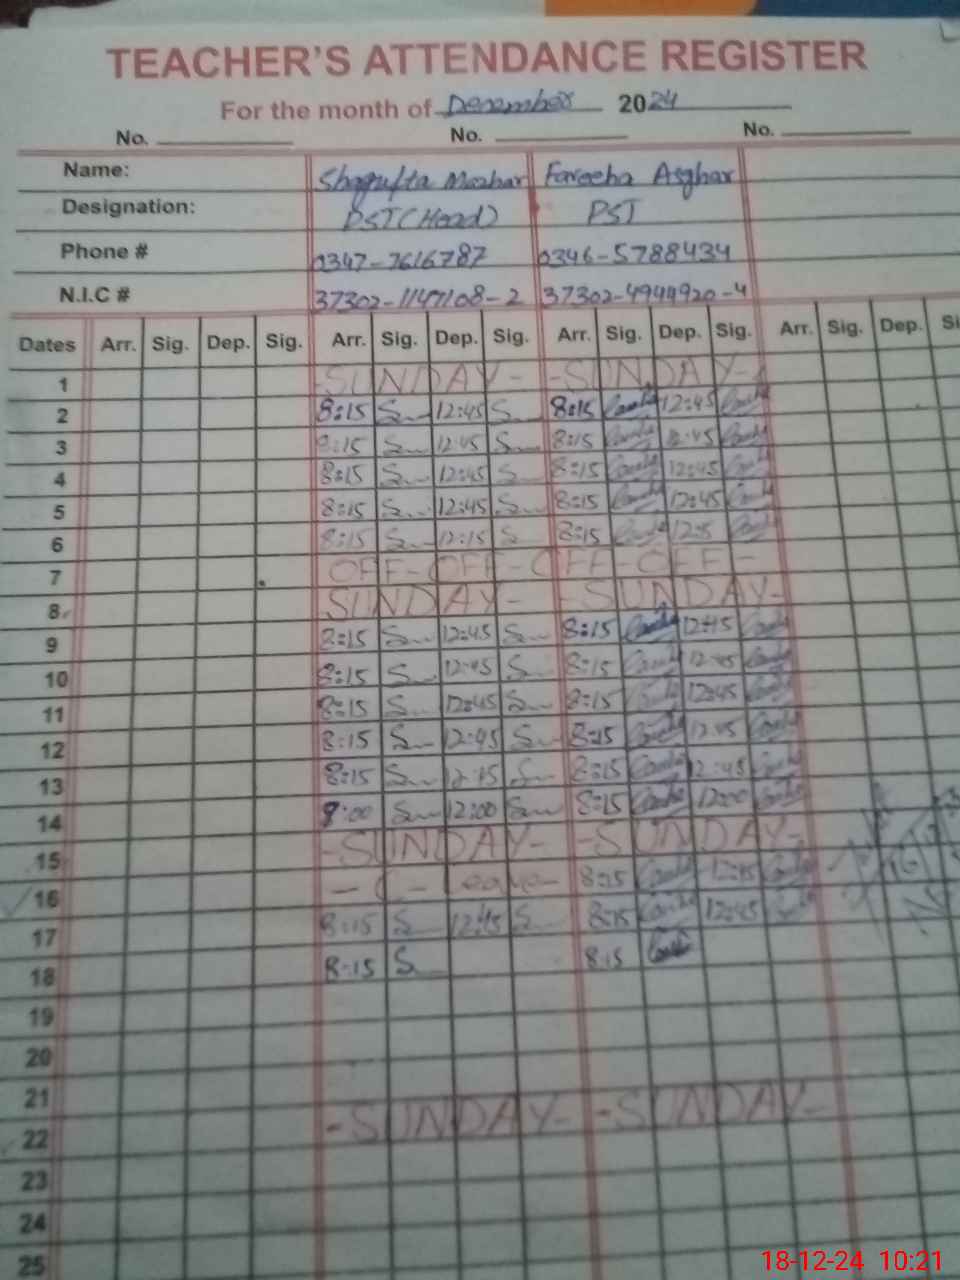 TEACHER'S ATTENDANCE REGISTER
For the month of December 2024
No. No. No.
Name: Shagufta Mazhar Fareeha Asghar
Designation: PST (Head) PST
Phone # 0347-7616787 0346-5788434
N.I.C # 37302-1147108-2 37302-4944920-4
Dates Arr. Sig. Dep. Sig. Arr. Sig. Dep. Sig. Arr. Sig. Dep. Sig. Arr. Sig. Dep. Si
1 -SUNDAY- -SUNDAY-
2 8:15 12:45 8:15 12:45
3 8:15 12:45 8:15 12:45
4 8:15 12:45 8:15 12:45
5 8:15 12:45 8:15 12:45
6 8:15 12:15 8:15 12:5
7 OFF-OFF-OFF-OFF-
8 SUNDAY- -SUNDAY-
9 8:15 12:45 8:15 12:45
10 8:15 12:45 8:15 12:45
11 8:15 12:45 8:15 12:45
12 8:15 12:45 8:15 12:45
13 8:15 12:45 8:15 12:45
14 8:00 12:00 8:15 12:00
15 -SUNDAY- -SUNDAY-
16 - C - Leave- 8:15 12:45
17 8:15 12:45 8:15 12:45
18 8:15 8:15
19
20
21
22 -SUNDAY- -SUNDAY-
23
24
25
18-12-24 10:21